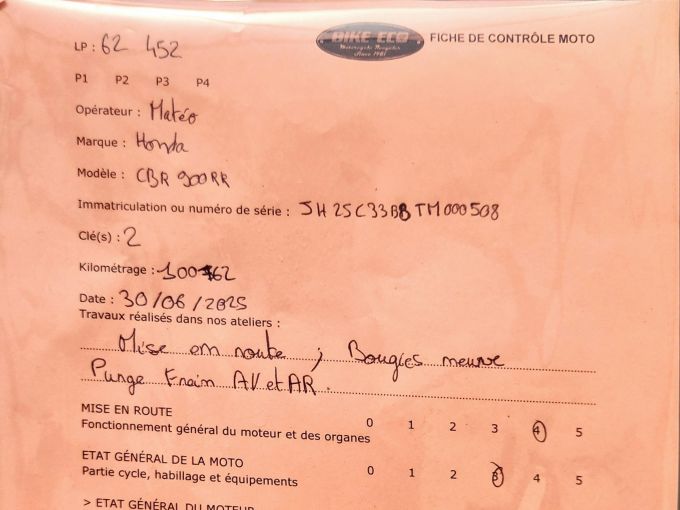 LP : 62 452
BIKE ECO
Motorcycle Recycler
Since 1981
FICHE DE CONTRÔLE MOTO
P1 P2 P3 P4
Opérateur : Matéo
Marque : Honda
Modèle : CBR 900RR
Immatriculation ou numéro de série : JH2SC33B8TM000508
Clé(s) : 2
Kilométrage :
Date : 30/06/2025
Travaux réalisés dans nos ateliers :
Mise en route ; Bougies neuve
Purge Frein AV et AR.
MISE EN ROUTE
Fonctionnement général du moteur et des organes 0 1 2 3 4 5
ETAT GÉNÉRAL DE LA MOTO
Partie cycle, habillage et équipements 0 1 2 3 4 5
> ETAT GÉNÉRAL DU MOTEUR